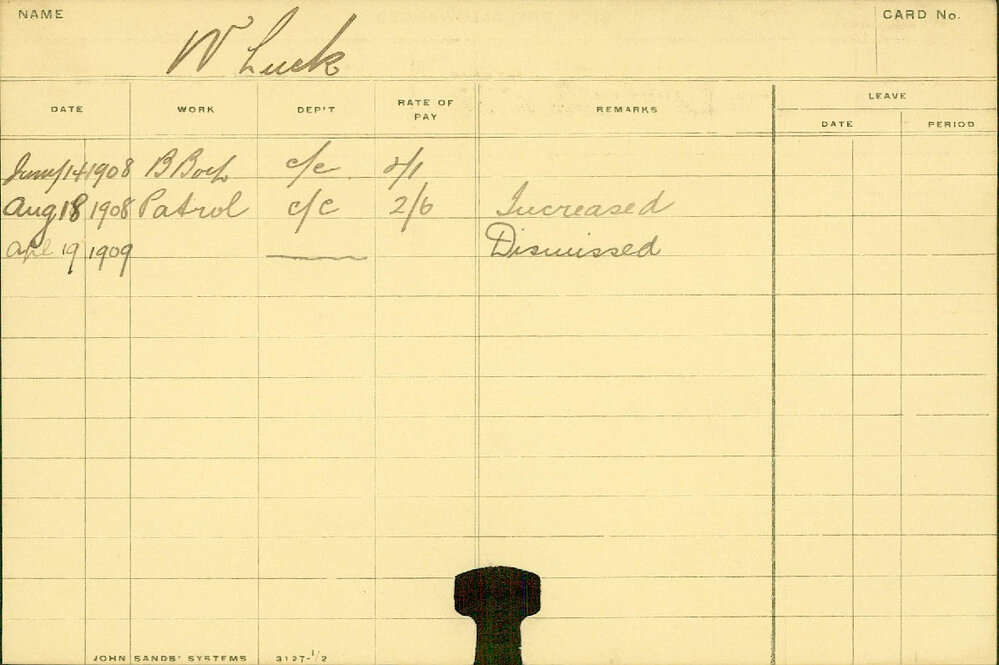 NAME W Luck CARD No.
DATE WORK DEP'T RATE OF PAY REMARKS LEAVE
DATE PERIOD
14 1908 B Boy c/c 2/1
Aug 18 1908 Patrol c/c 2/6 Increased
Apl 19 1909 Dismissed
JOHN SANDS' SYSTEMS 3127-1/2